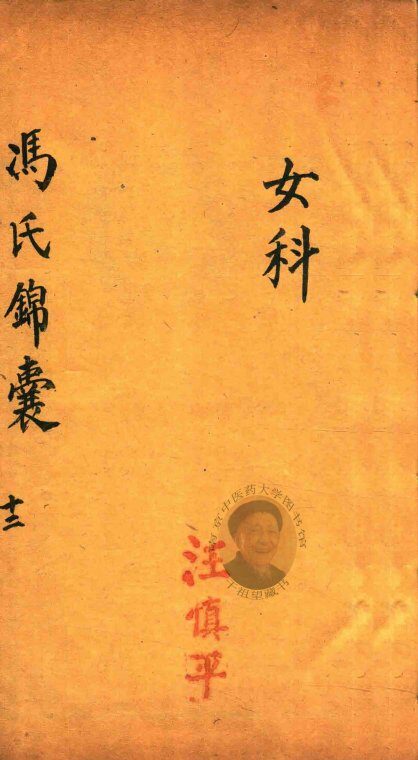 女科
馮氏錦囊
十二
汪慎平
南京中医药大学图书馆
干祖望藏书